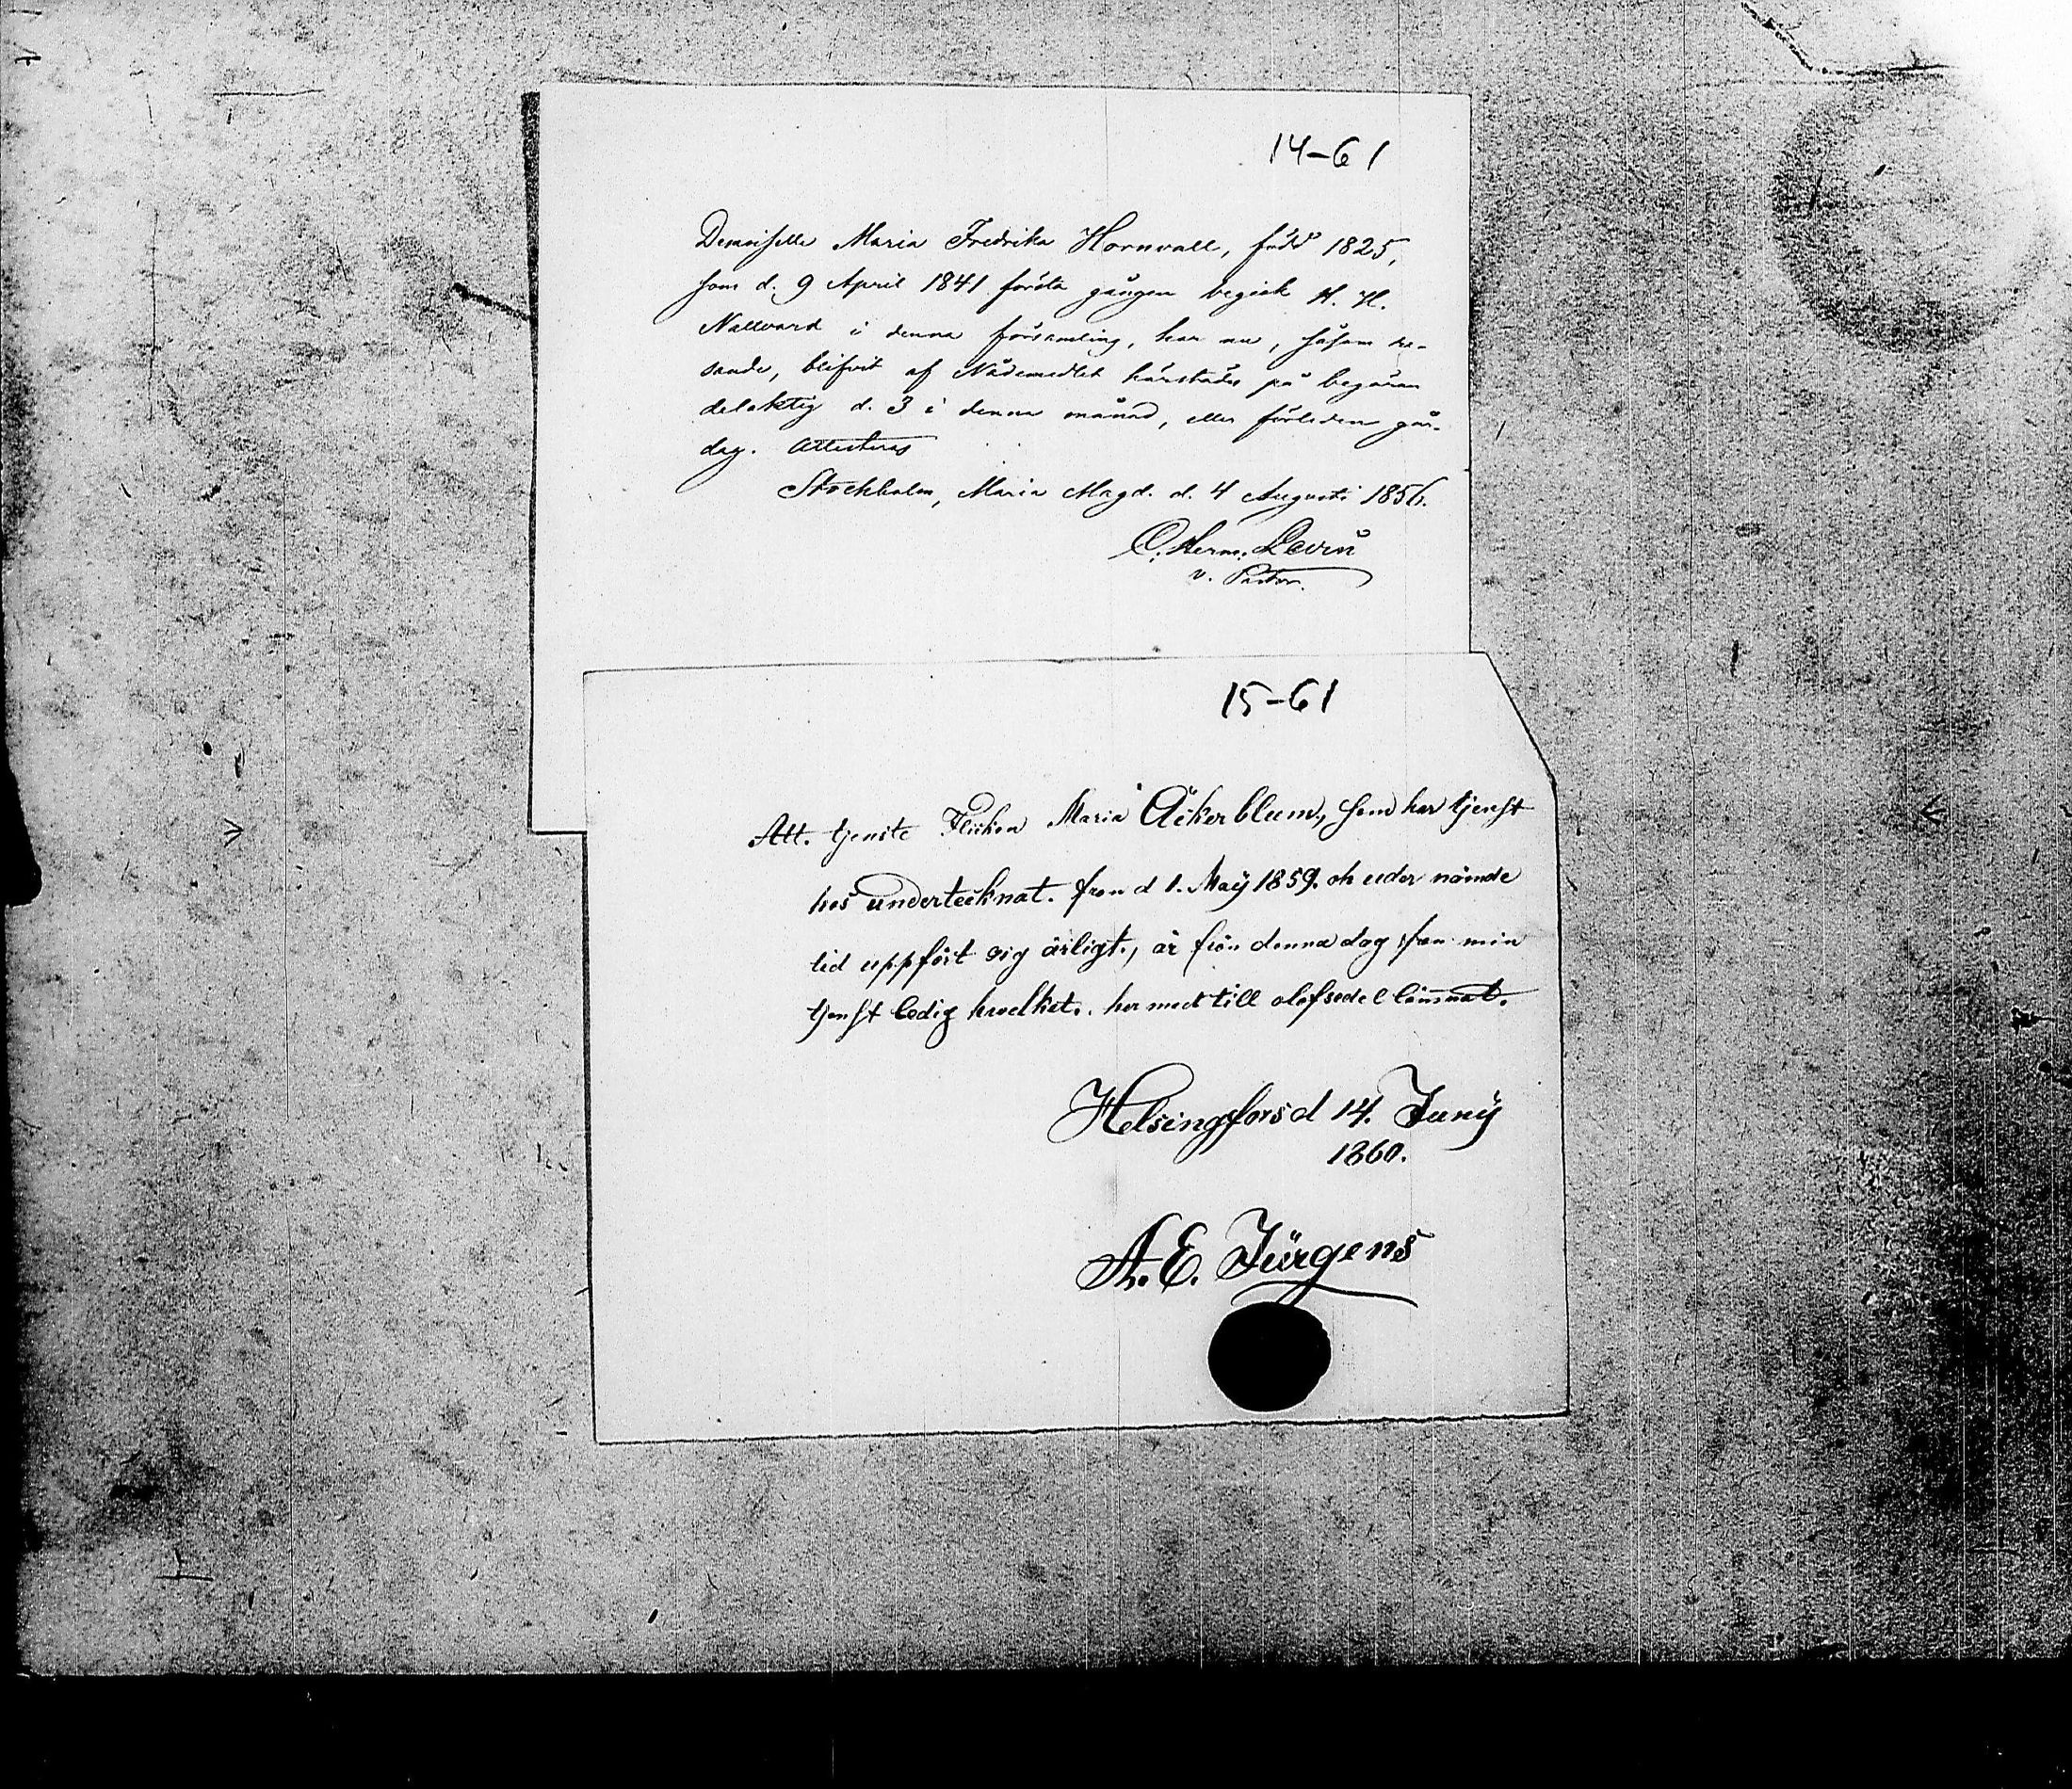 14-61
Demoiselle Maria Fredrika Hornvall, född 1825,
som d. 9 April 1841 första gången begick H. H.
Nattvard i denna församling, har nu, såsom re-
sande, blifvit af Nådemedlet härstädes på begäran
delaktig d. 3 i denna månad, eller förleden går-
dag. Attesteras
Stockholm, Maria Magd. d. 4 Augusti 1856.
C. Herm. Levin
v. Pastor.
15-61
Att. tjenste Flickan Maria Åkerblum, som har tjenst
hos undertecknat. fron d 1. Maÿ 1859. oh uder nämde
tid uppfört sig ärligt., är från denna dag fran min
tjenst ledig hvelket. her med till olofsedel lämnat.
Helsingfors d 14. Junÿ
1860.
A. E. Jürgens